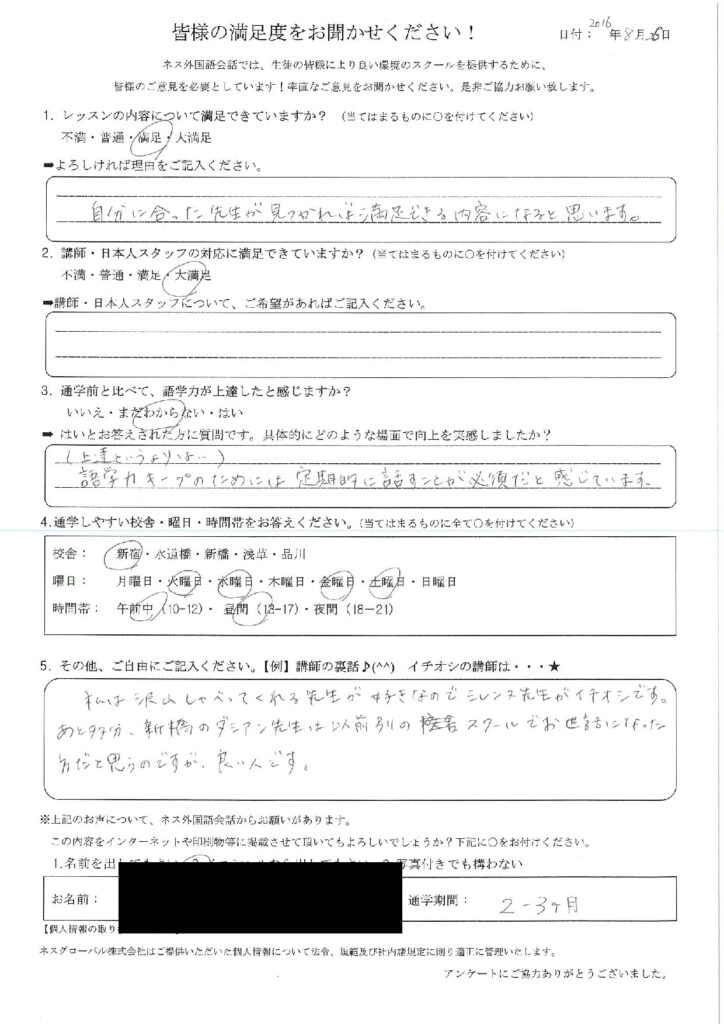 皆様の満足度をお聞かせください!
日付: 2016 年 8月 日
ネス外国語会話では、生徒の皆様により良い環境のスクールを提供するために、
皆様のご意見を必要としています!率直なご意見をお聞かせください。是非ご協力お願い致します。
1. レッスンの内容について満足できていますか? (当てはまるものに○を付けてください)
不満・普通・満足・大満足
➡よろしければ理由をご記入ください。
自分に合った先生が見つかれば満足できる内容になると思います。
2. 講師・日本人スタッフの対応に満足できていますか?(当てはまるものに○を付けてください)
不満・普通・満足・大満足
➡講師・日本人スタッフについて、ご希望があればご記入ください。
3. 通学前と比べて、語学力が上達したと感じますか?
いいえ・まだわからない・はい
➡ はいとお答えされた方に質問です。具体的にどのような場面で向上を実感しましたか?
(上達というよりは…)
語学力キープのためには定期的に話すことが必須だと感じています。
4.通学しやすい校舎・曜日・時間帯をお答えください。(当てはまるものに全て○を付けてください)
校舎: 新宿・水道橋・新橋・浅草・品川
曜日: 月曜日・火曜日・水曜日・木曜日・金曜日・土曜日・日曜日
時間帯: 午前中(10-12)・ 昼間(13-17)・夜間(18-21)
5. その他、ご自由にご記入ください。【例】講師の裏話♪(^^) イチオシの講師は・・・★
私は沢山しゃべってくれる先生が好きなのでミレンヌ先生がイチオシです。
あと多分、新橋のダミアン先生は以前別の スクールでお世話になった
方だと思うのですが、良い人です。
※上記のお声について、ネス外国語会話からお願いがあります。
この内容をインターネットや印刷物等に掲載させて頂いてもよろしいでしょうか?下記に○をお付けください。
1.名前を出してもよい 写真付きでも構わない
お名前:
通学期間: 2-3ヶ月
【個人情報の取り
ネスグローバル株式会社はご提供いただいた個人情報について法令、規範及び社内諸規定に則り適正に管理いたします。
アンケートにご協力ありがとうございました。